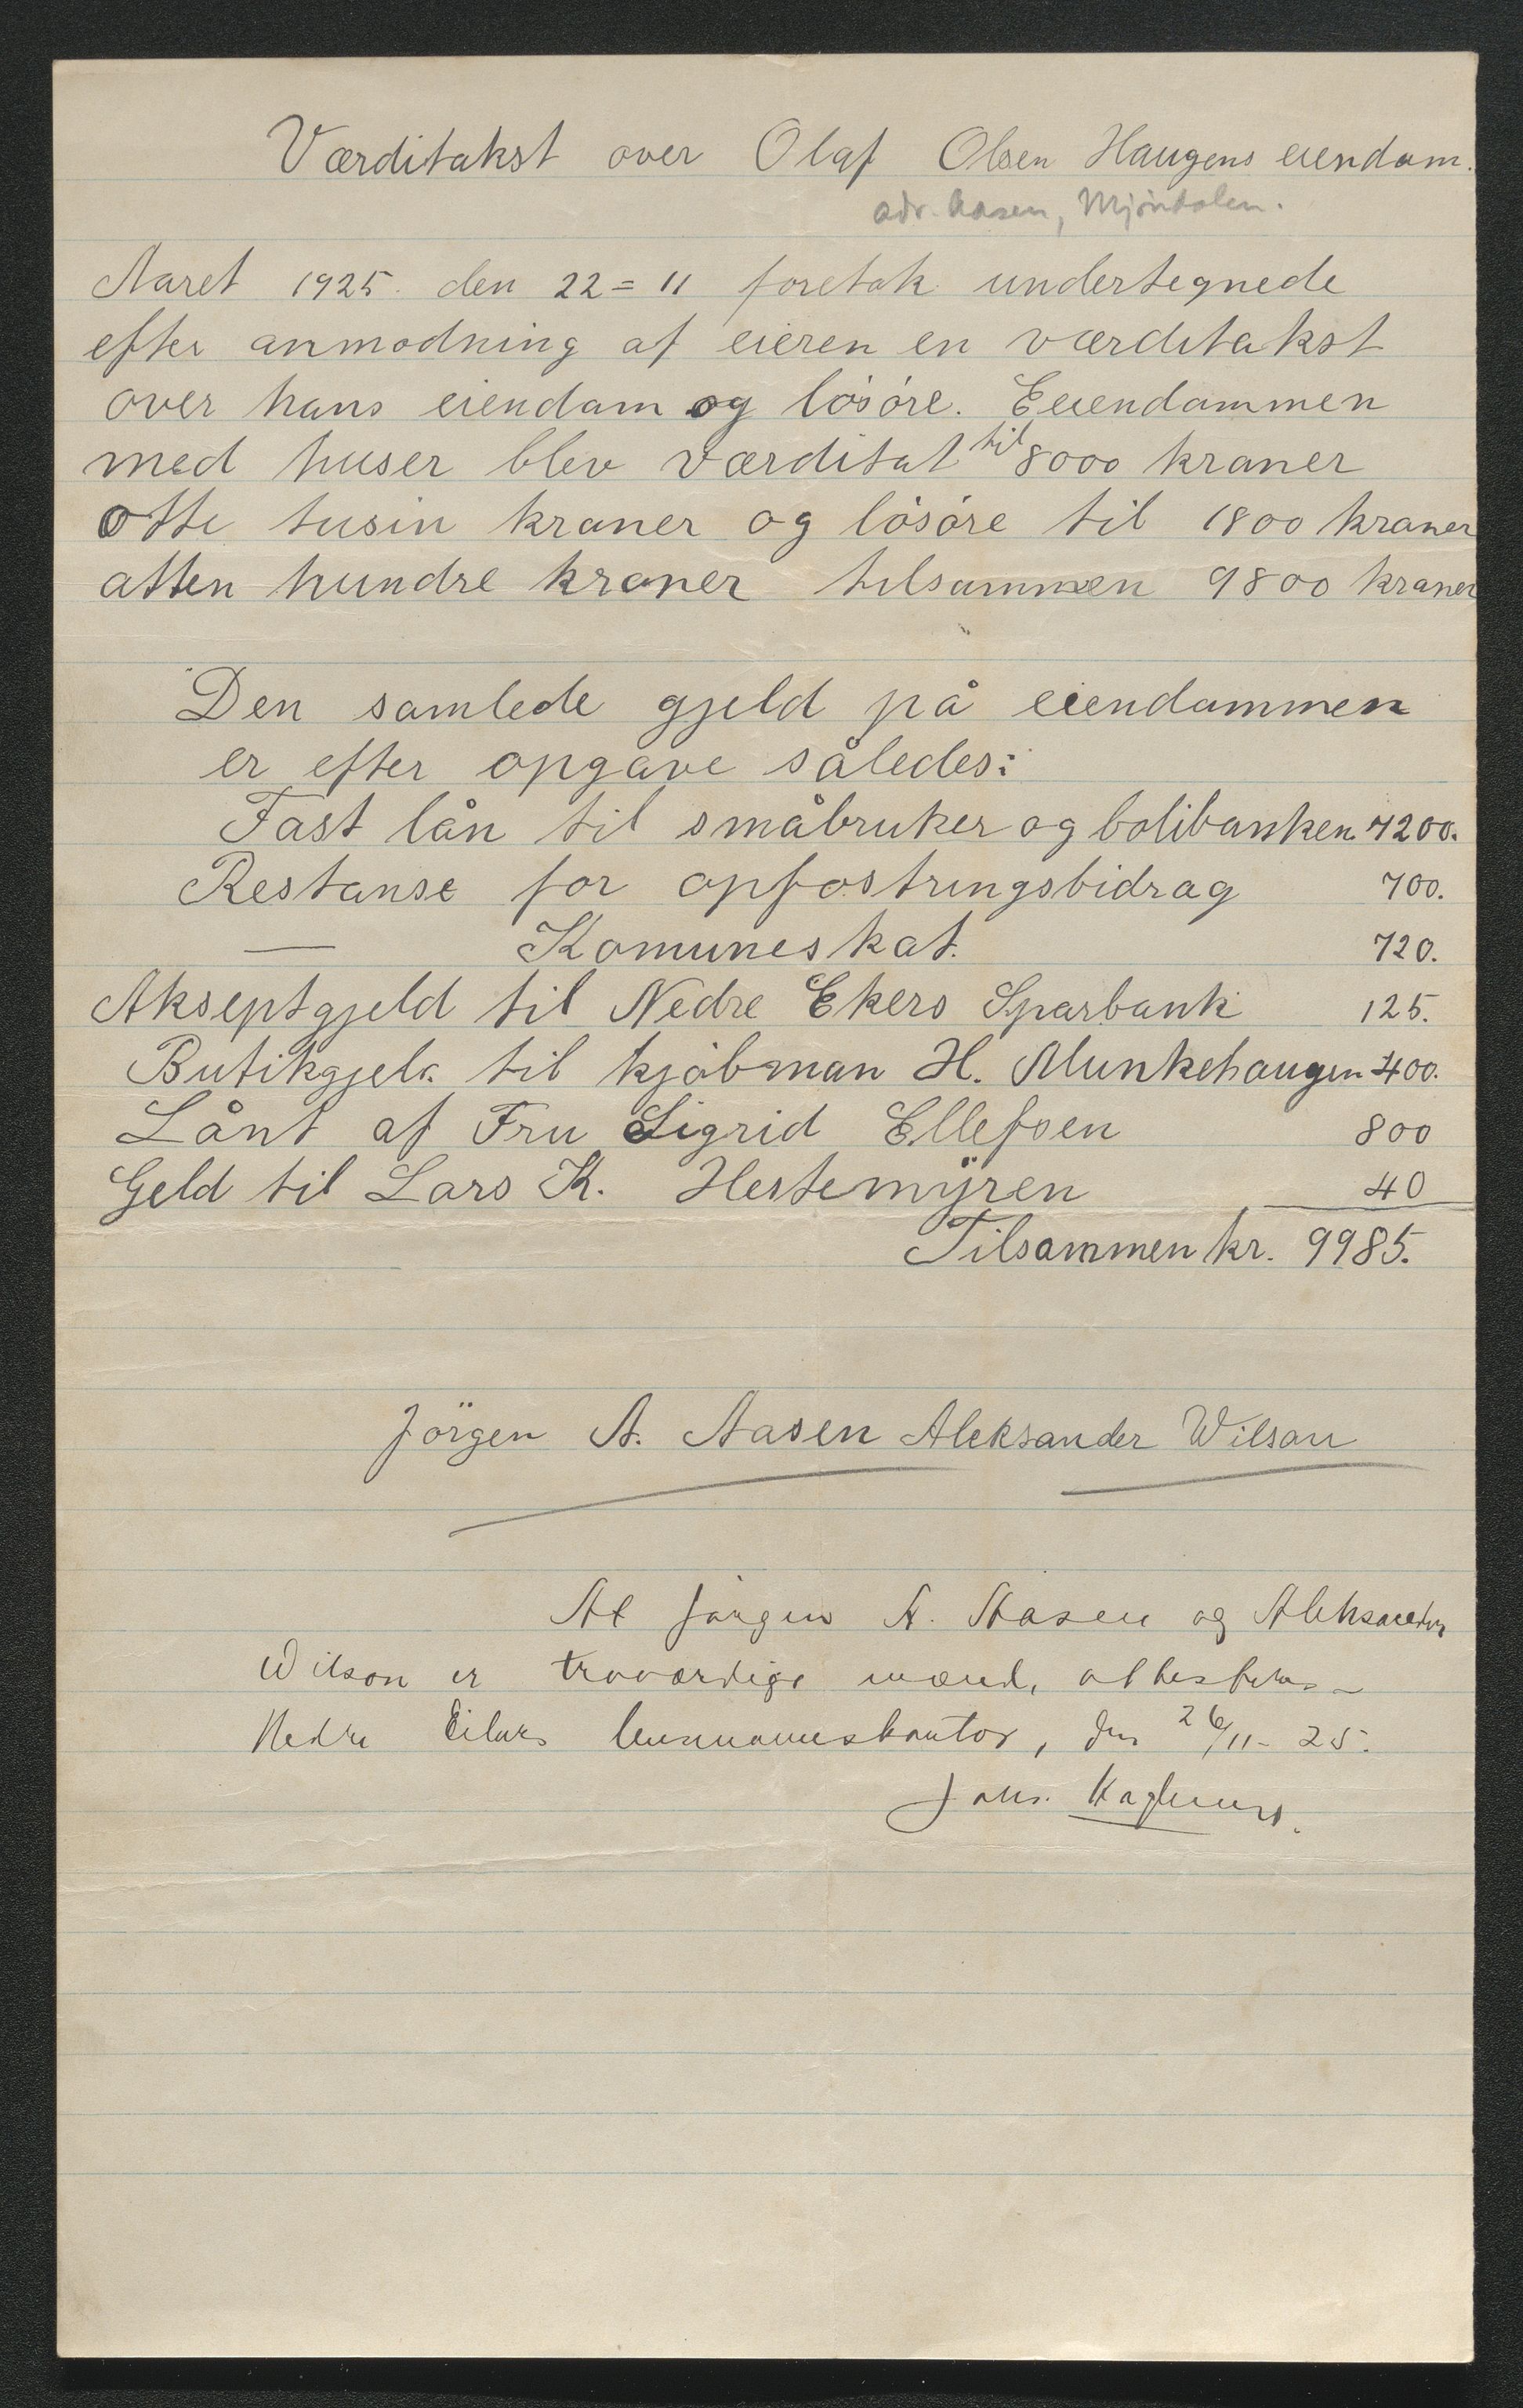 Værditakst over Olaf Olsen Haugens eiendom.
adr. Aasen, Mjöndalen.
Aaret 1925. den 22=11 foretok undertegnede
efter anmodning af eieren en værditakst
over hans eiendom og lösöre. Eeiendommen
med huser blev værditat til 8000 kroner
otte tusin kroner og lösöre til 1800 kroner
atten hundre kroner tilsammen 9800 kroner
Den samlede gjeld på eiendommen
er efter opgave således:
Fast lån til småbruker og bolibanken. 7200.
Restanse for opfostringsbidrag 700.
— Komuneskat. 720.
Akseptgjeld til Nedre Ekers Sparbank 125.
Butikgjeld til kjöbman H. Munkehaugen 400.
Lånt af Fru Sigrid Ellefsen 800
Geld til Lars K. Hestemyren 40
Tilsammen kr. 9985.
Jörgen A. Aasen Aleksander Wilson
At Jörgen A. Aasen og Aleksander
Wilson er troværdige mænd, attesteres
Nedre Eikers lensmannskontor, den 26/11-25.
Johs.